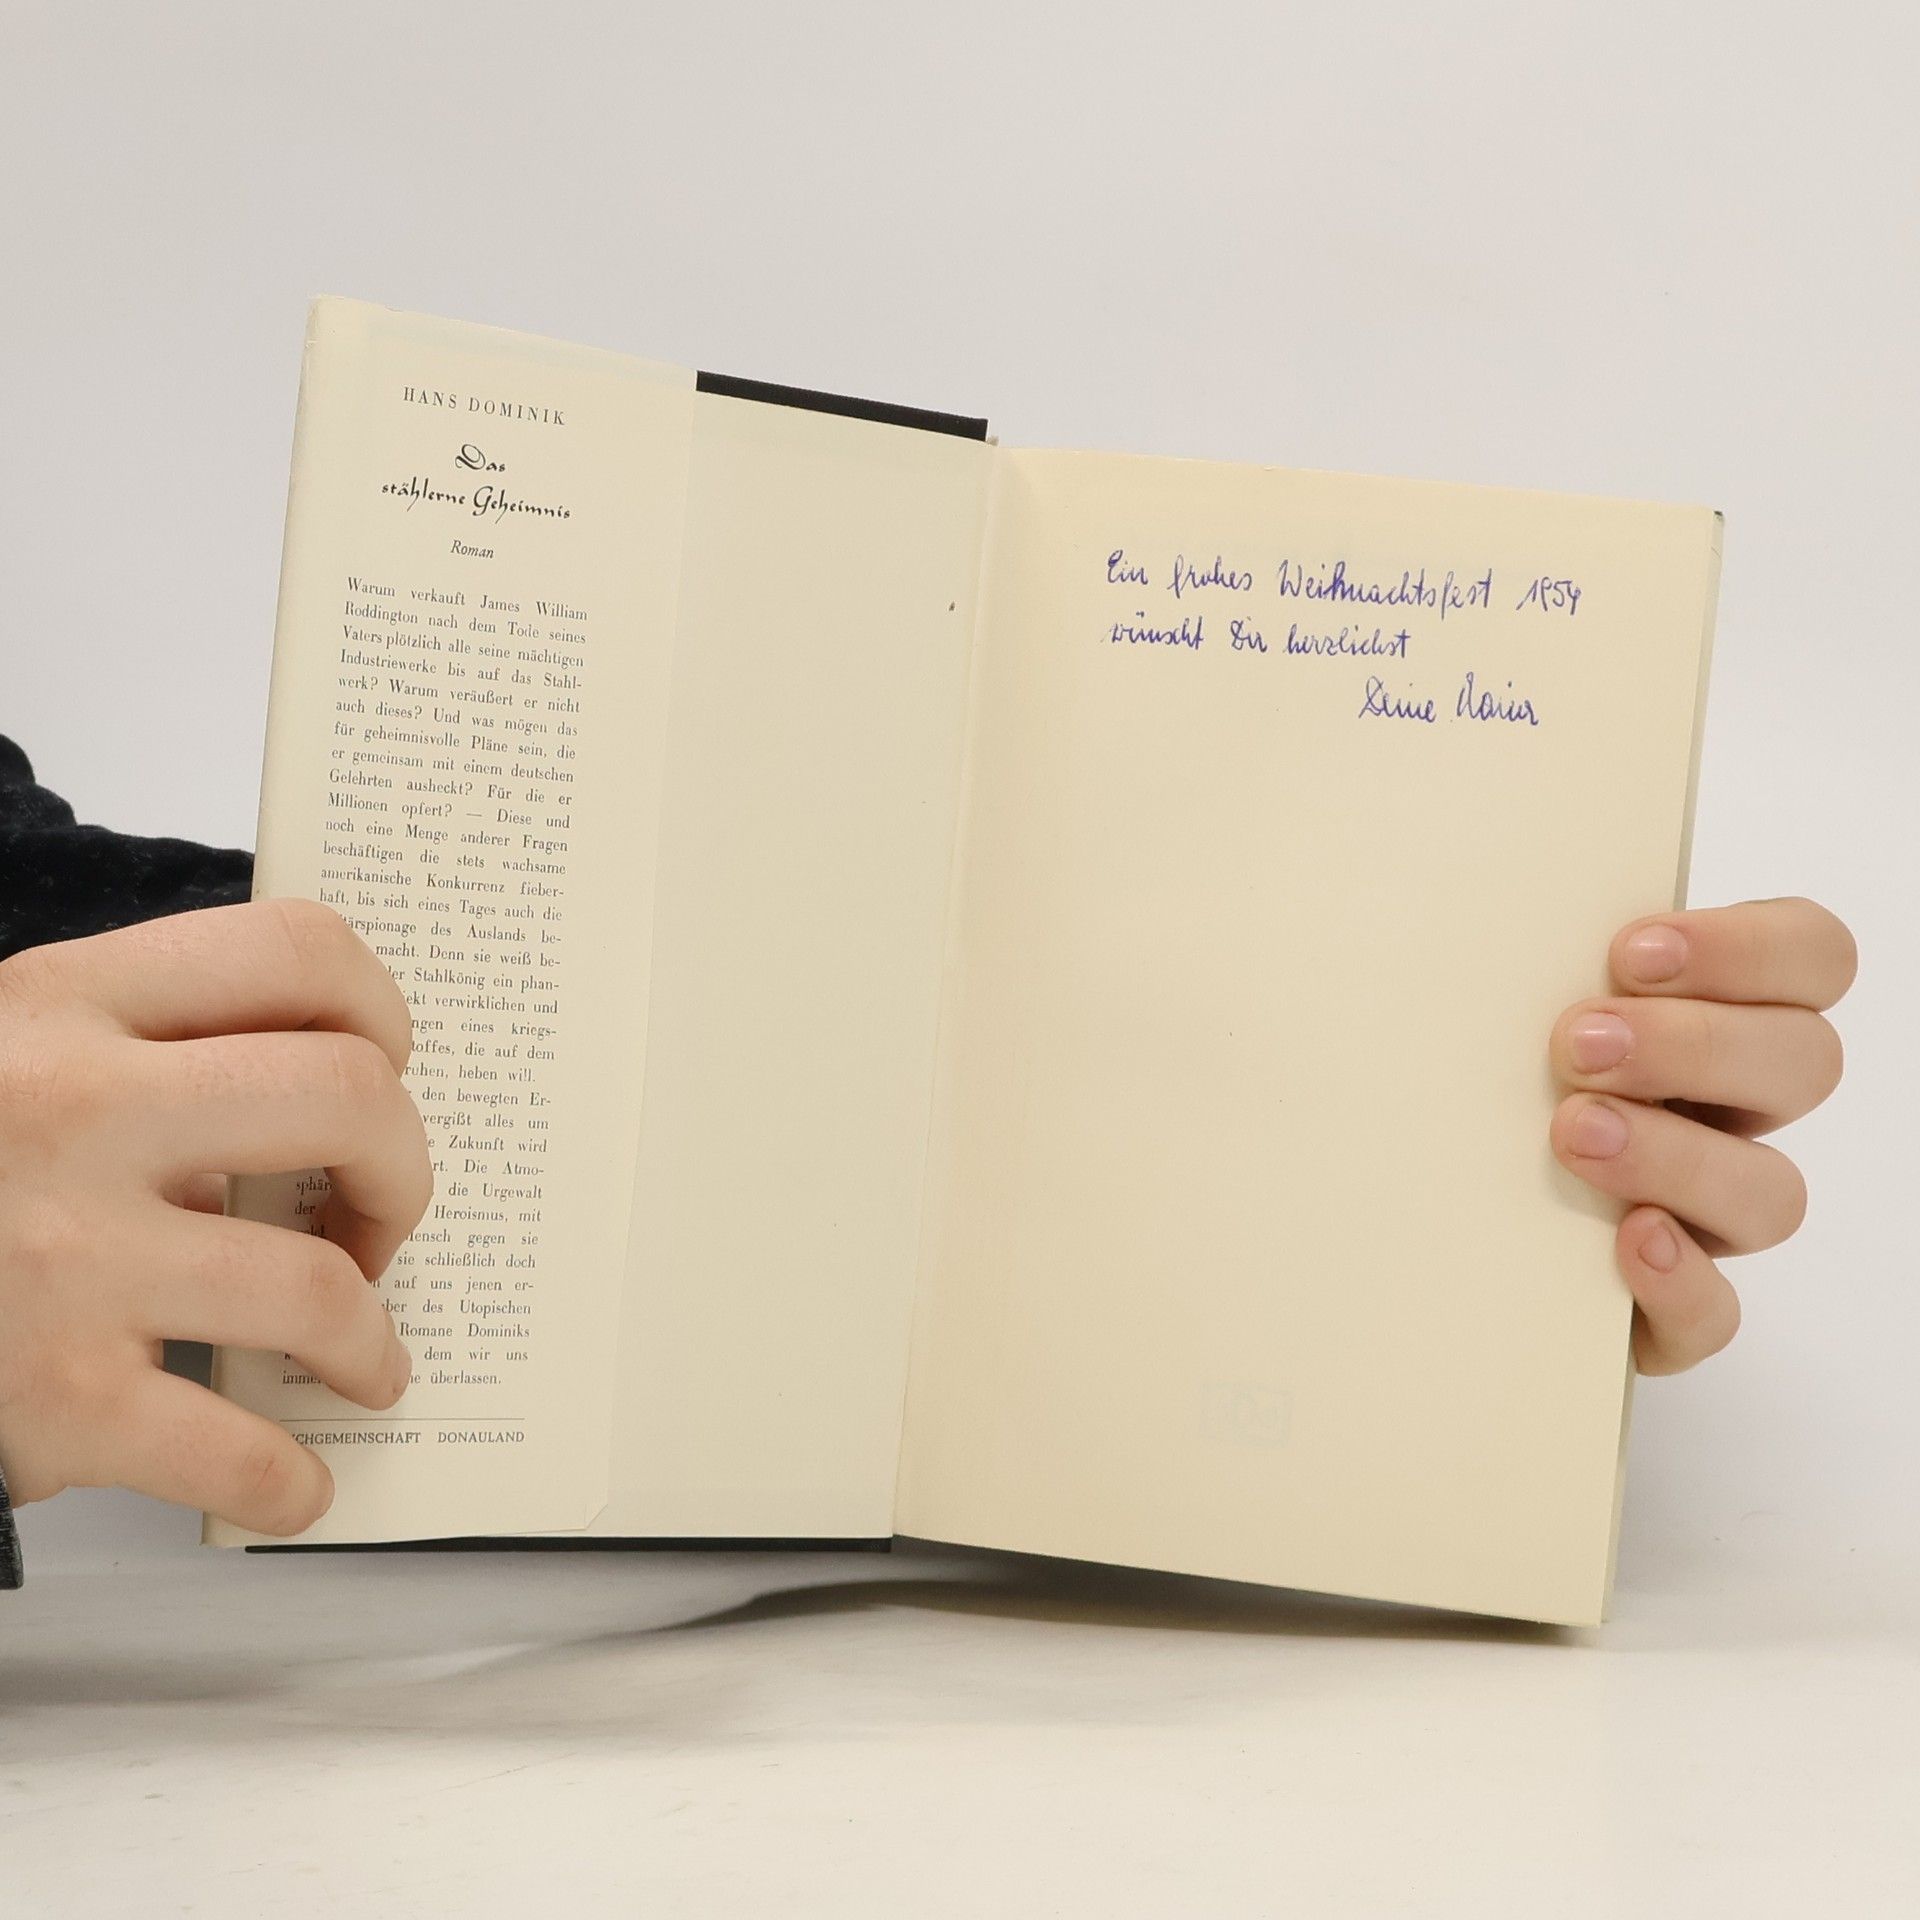 HANS DOMINIK
Das
stählerne Geheimnis
Roman
Warum verkauft James William
Roddington nach dem Tode seines
Vaters plötzlich alle seine mächtigen
Industriewerke bis auf das Stahl-
werk? Warum veräußert er nicht
auch dieses? Und was mögen das
für geheimnisvolle Pläne sein, die
er gemeinsam mit einem deutschen
Gelehrten ausheckt? Für die er
Millionen opfert? — Diese und
noch eine Menge anderer Fragen
beschäftigen die stets wachsame
amerikanische Konkurrenz fieber-
haft, bis sich eines Tages auch die
tärspionage des Auslands be-
macht. Denn sie weiß be-
der Stahlkönig ein phan-
jekt verwirklichen und
ngen eines kriegs-
toffes, die auf dem
ruhen, heben will.
den bewegten Er-
vergißt alles um
e Zukunft wird
rt. Die Atmo-
sphär die Urgewalt
der Heroismus, mit
Mensch gegen sie
sie schließlich doch
auf uns jenen er-
ber des Utopischen
Romane Dominiks
dem wir uns
imme ne überlassen.
CHGEMEINSCHAFT DONAULAND
Ein frohes Weihnachtsfest 1954
wünscht Dir herzlichst
Deine